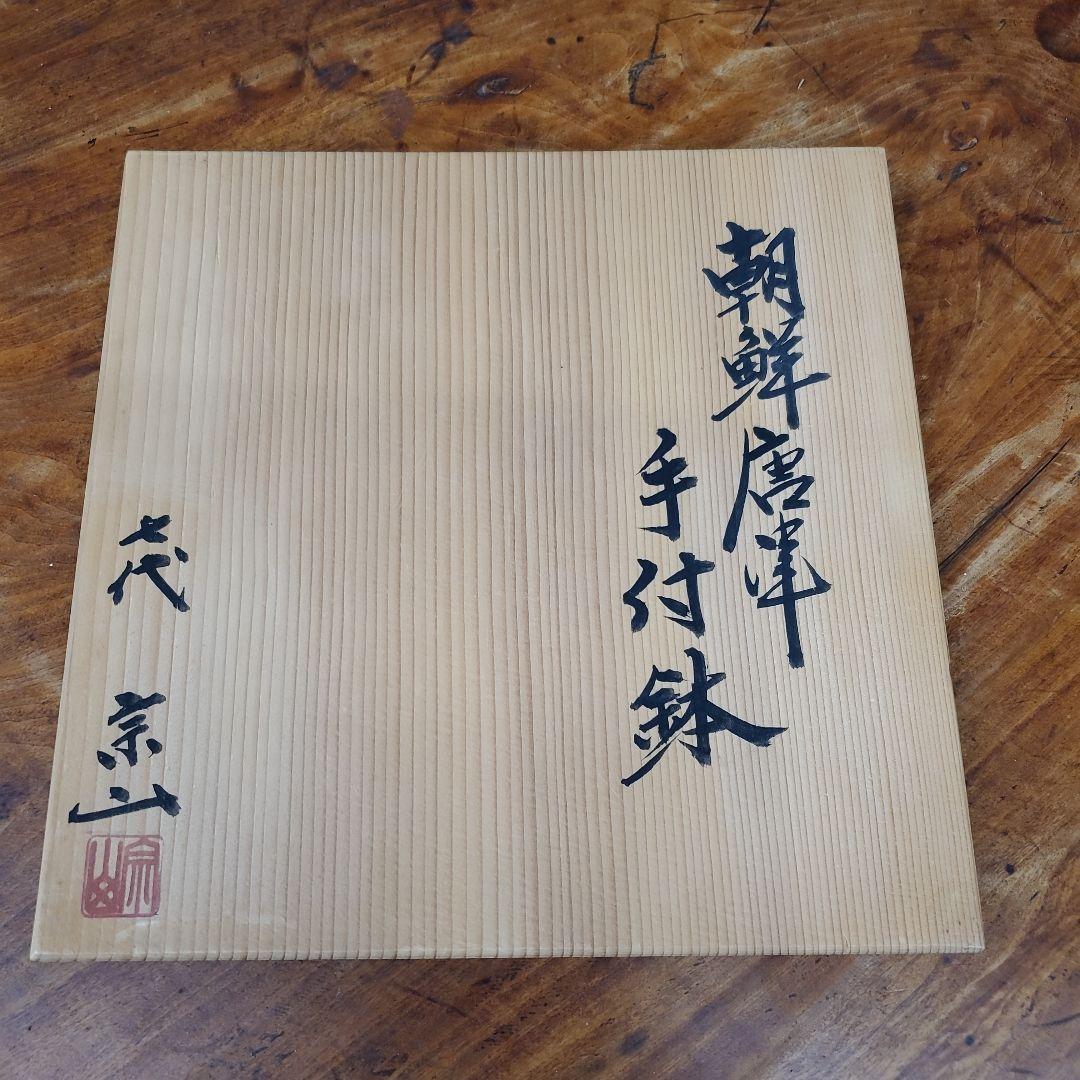 朝鮮唐津
手付鉢
七代 宗山
宗山